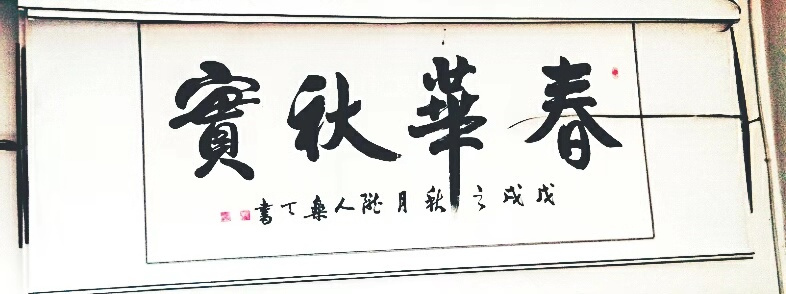 春華秋實
戊戌之秋月陇人桑丁書